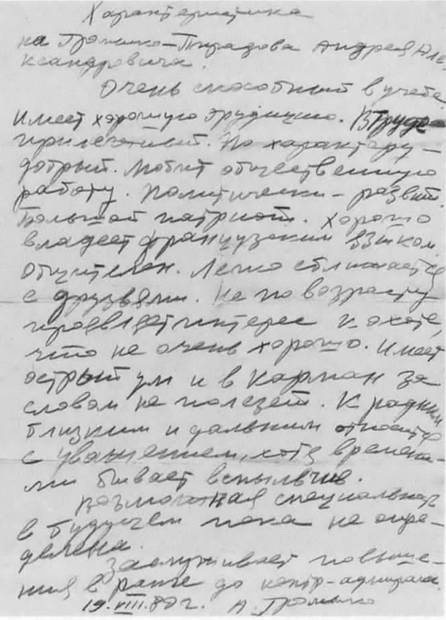 Характеристика
на Громыко-Пирадова Андрея Але
ксандровича.
Очень способный в учебе
Имеет хорошую эрудицию. В труде
прилежный. По характеру –
добрый. Любит общественную
работу. Политически – развит.
Большой патриот. Хорошо
владеет французским языком.
Общителен. Легко сближается
с друзьями. Не по возрасту
проявляет интерес к охоте
что не очень хорошо. Имеет
острый ум и в карман за
словом не полезет. К родным
близким и дальним относится
с уважением, хотя времена-
ми бывает вспыльчив.
Возможная специальность
в будущем пока не опре-
делена.
Заслуживает повыше-
ния в ранге до контр-адмирала.
19.VIII.80г. А. Громыко